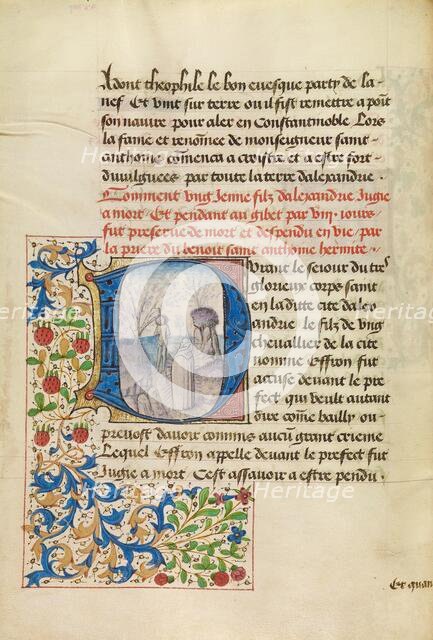 Adont theophile le bon evesque party de la
nef Et vint sur terre ou il fist remettre a point
son navire pour aler en Constantinoble Lors
la fame et renomee de monseigneur saint
anthoine comenca a croistre et a estre fort
divulguees par toute la terre dalexandrie.
Comment ung Jenne filz dalexandrie Jugie
a mort Et pendant au gibet par viii iours
fut preserve de mort et despendu en vie par
la priere du benoit saint anthoine hermite.
Durant le seiour du tres
glorieux corps saint
en la ditte cite dalex
andrie le filz de ung
chevallier de la cite
nomme Effron fut
accuse devant le pre
fect qui vault autant
dire come bailly ou
prevost davoir commis aucun grant crieme
Lequel Effron appelle devant le prefect fut
Jugie a mort Cest assavoir a estre pendu.
Et quan
Heritage
Heritage
Heritage
Heritage